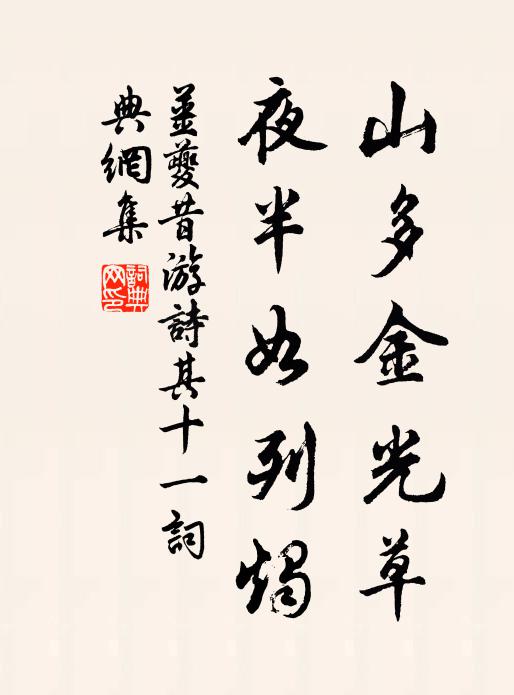 山多金光草
夜半如列燭
姜夔昔游詩其十一詞
典網集
詞典網印